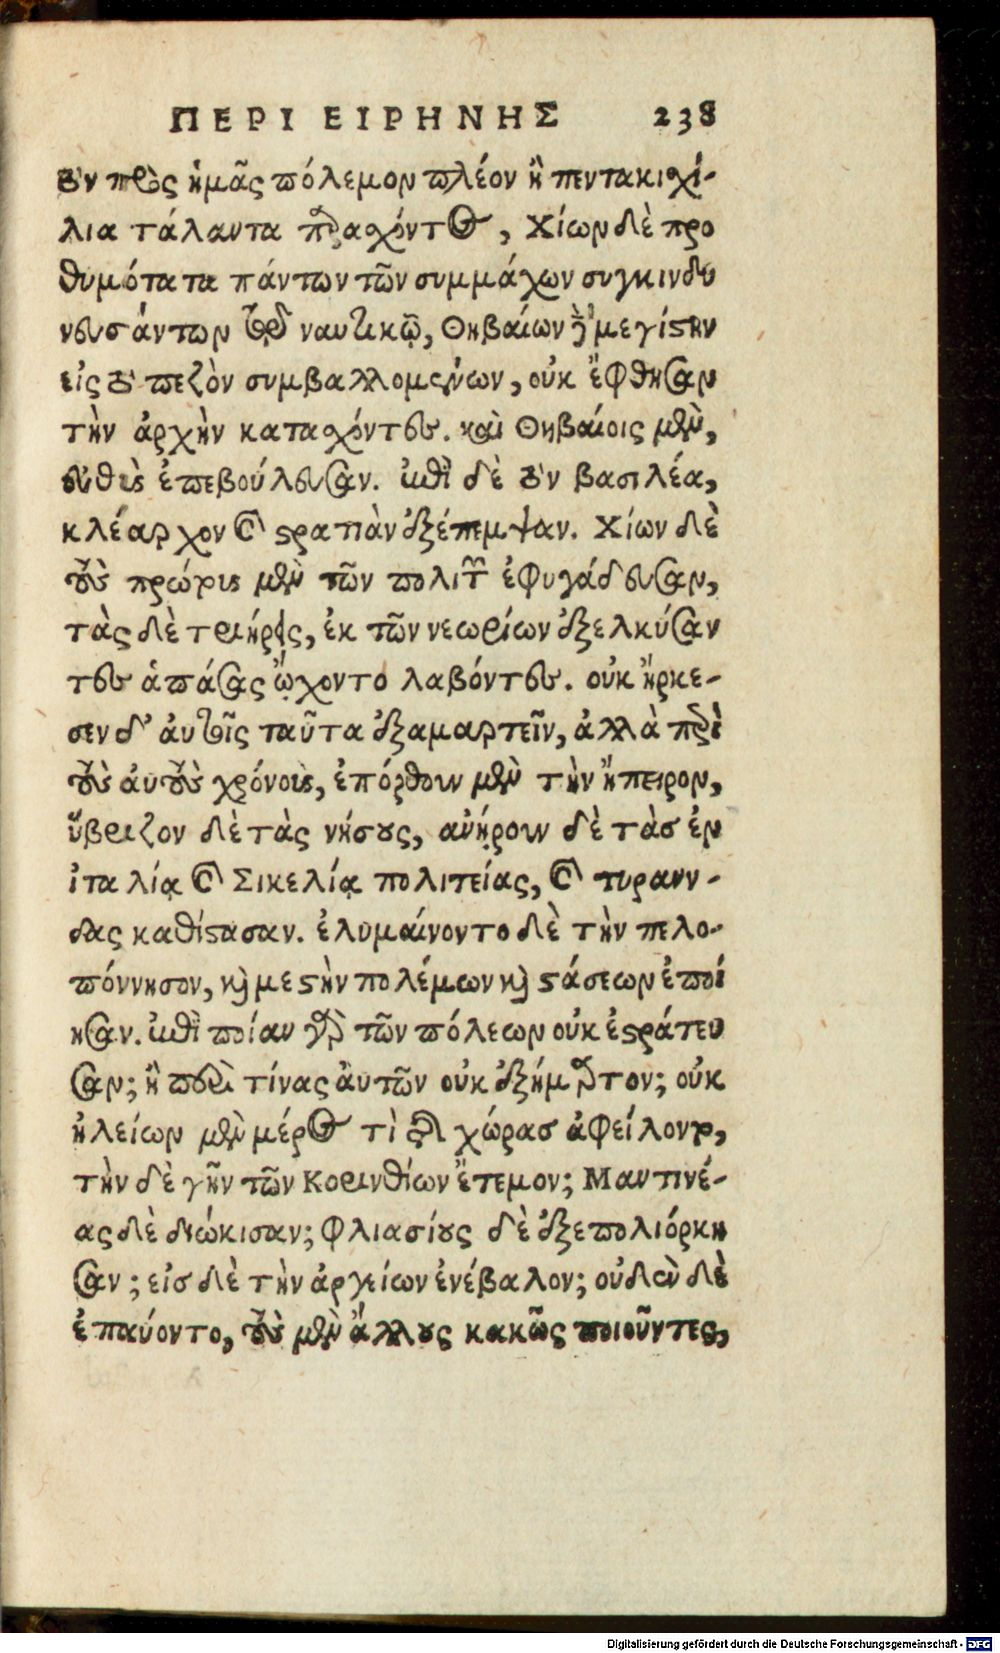 ΠΕΡΙ ΕΙΡΗΝΗΣ 238
τὸν πρὸς ἡμᾶς πόλεμον πλέον ἢ πεντακισχί-
λια τάλαντα παρασχόντος, Χίων δὲ προ
θυμότατα πάντων τῶν συμμάχων συγκινδυ
νευσάντων τῷ ναυτικῷ, Θηβαίων δὲ μεγίστην
εἰς τὸ πεζὸν συμβαλλομένων, οὐκ ἔφθησαν
τὴν ἀρχὴν κατασχόντες. καὶ Θηβαίοις μὲν,
εὐθὺς ἐπεβούλευσαν. ἐπὶ δὲ τὸν βασιλέα,
κλέαρχον καὶ στρατιὰν ἐξέπεμψαν. Χίων δὲ
τοὺς πρώτους μὲν τῶν πολιτῶν ἐφυγάδευσαν,
τὰς δὲ τριήρεις, ἐκ τῶν νεωρίων ἐξελκύσαν
τες ἁπάσας ᾤχοντο λαβόντες. οὐκ ἤρκε-
σεν δ' ἀυτοῖς ταῦτα ἐξαμαρτεῖν, ἀλλὰ περὶ
τοὺς αὐτοὺς χρόνους, ἐπόρθουν μὲν τὴν ἤπειρον,
ὕβριζον δὲ τὰς νήσους, ἀνῄρουν δὲ τὰσ ἐν
ἰταλίᾳ καὶ Σικελίᾳ πολιτείας, καὶ τυραννί-
δας καθίστασαν. ἐλυμαίνοντο δὲ τὴν πελο-
πόννησον, καὶ μεστὴν πολέμων καὶ στάσεων ἐποί
ησαν. ἐπὶ ποίαν γὰρ τῶν πόλεων οὐκ ἐστράτευ
σαν; ἢ περὶ τίνας ἀυτῶν οὐκ ἐξήμαρτον; οὐκ
ἠλείων μὲν μέρος τὶ τῆς χώρασ ἀφείλοντο,
τὴν δὲ γῆν τῶν Κορινθίων ἔτεμον; Μαντινέ-
ας δὲ διώκισαν; Φλιασίους δὲ ἐξεπολιόρκη
σαν; εἰσ δὲ τὴν ἀργείων ἐνέβαλον; οὐδὲν δὲ
ἐπαύοντο, τοὺς μὲν ἄλλους κακῶς ποιοῦντες,
Digitalisierung gefördert durch die Deutsche Forschungsgemeinschaft - DFG